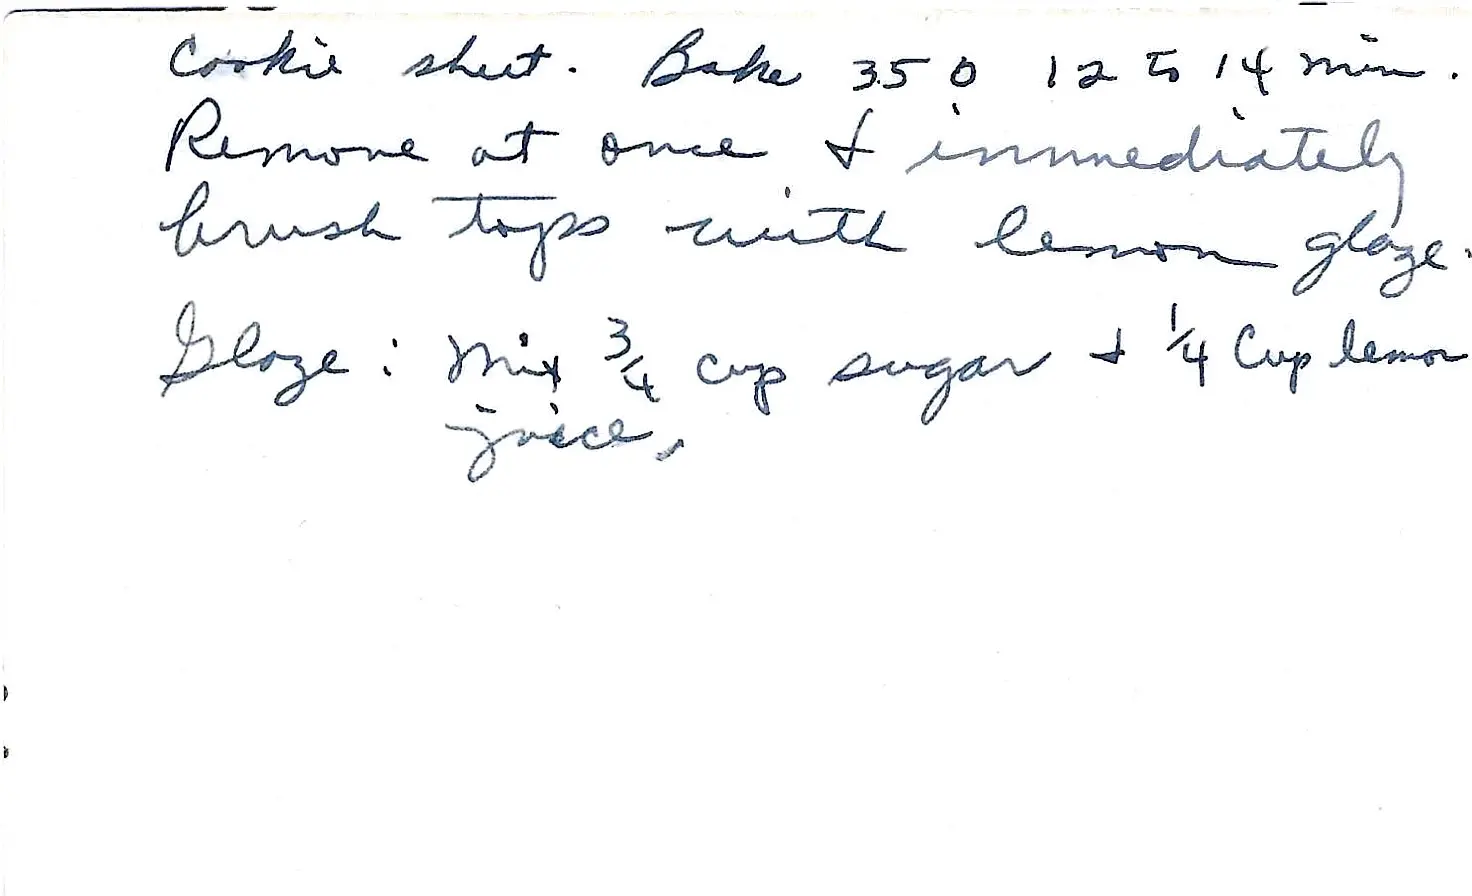 Cookie sheet. Bake 350 12 to 14 min.
Remove at once & immediately
brush tops with lemon glaze.
Glaze: Mix 3/4 cup sugar & 1/4 Cup lemon
juice.